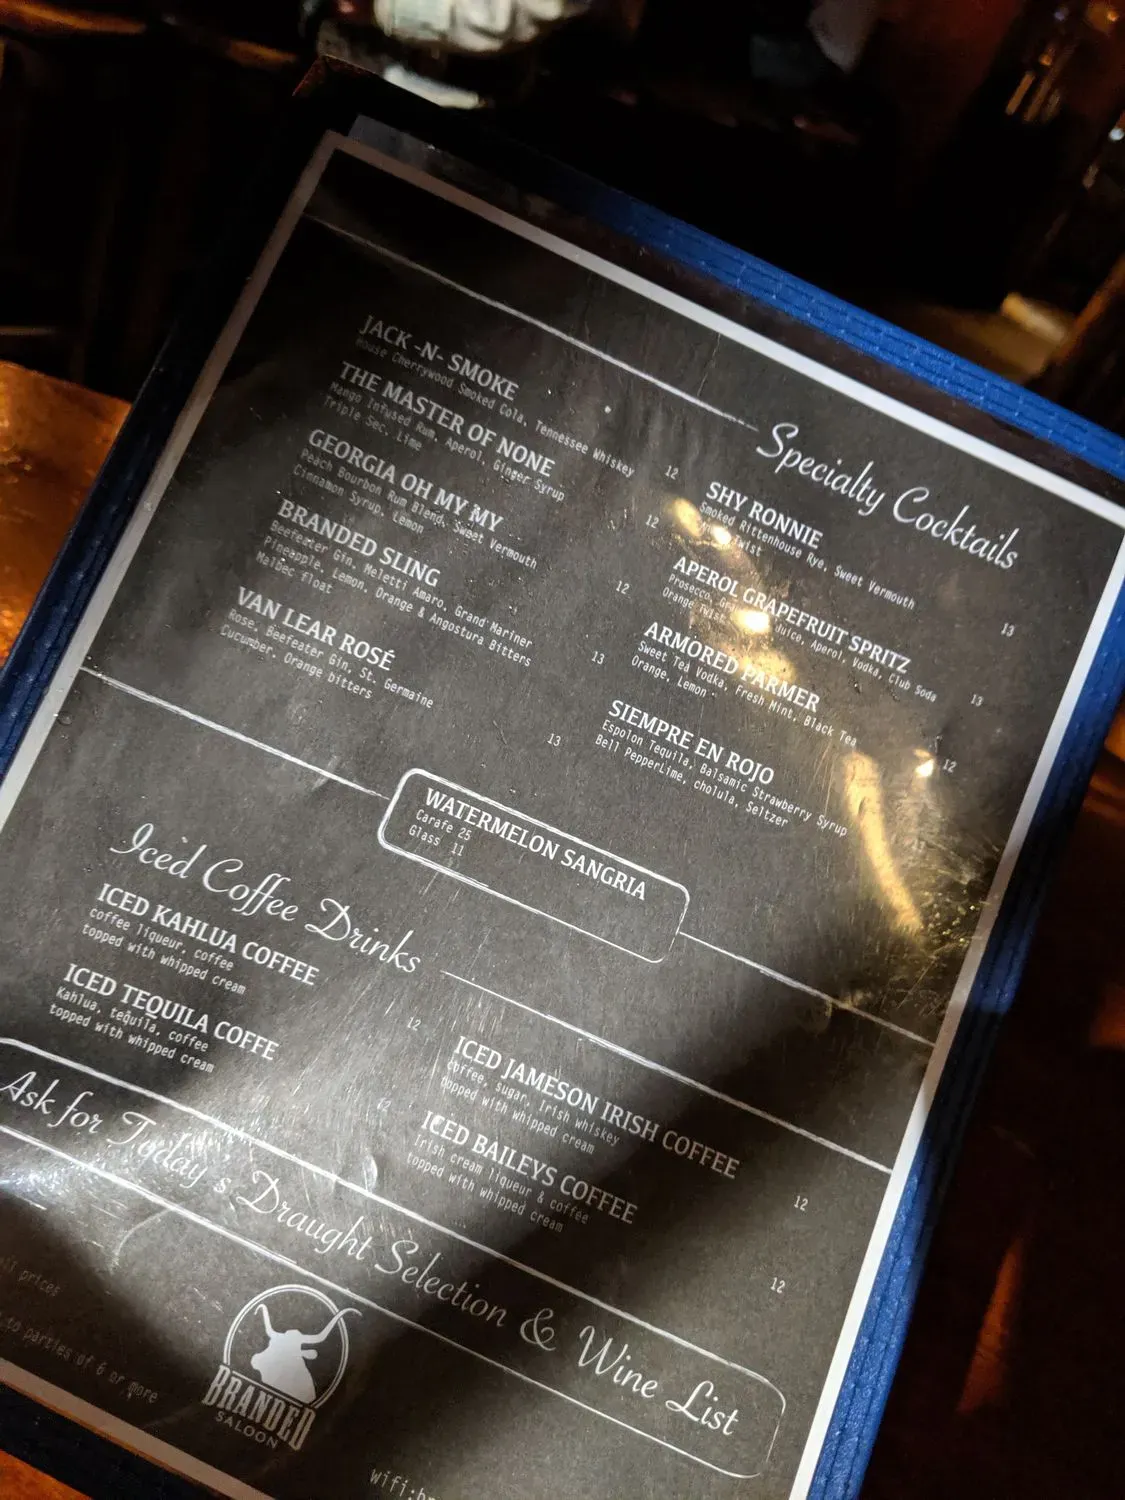 Specialty Cocktails
JACK -N- SMOKE
House Cherrywood Smoked Cola, Tennessee Whiskey
12
THE MASTER OF NONE
Mango Infused Rum, Aperol, Ginger Syrup
Triple Sec, Lime
12
GEORGIA OH MY MY
Peach Bourbon Rum Blend, Sweet Vermouth
Cinnamon Syrup, Lemon
12
BRANDED SLING
Beefeater Gin, Meletti Amaro, Grand Mariner
Pineapple, Lemon, Orange & Angostura Bitters
Malbec float
13
VAN LEAR ROSÉ
Rose, Beefeater Gin, St. Germaine
Cucumber, Orange bitters
13
SHY RONNIE
Smoked Rittenhouse Rye, Sweet Vermouth
Twist
13
APEROL GRAPEFRUIT SPRITZ
Prosecco, Juice, Aperol, Vodka, Club Soda
Orange Twist
13
ARMORED PARMER
Sweet Tea Vodka, Fresh Mint, Black Tea
Orange, Lemon
12
SIEMPRE EN ROJO
Espolon Tequila, Balsamic Strawberry Syrup
Bell PepperLime, cholula, Seltzer
WATERMELON SANGRIA
Carafe 25
Glass 11
Iced Coffee Drinks
ICED KAHLUA COFFEE
coffee liqueur, coffee
topped with whipped cream
12
ICED TEQUILA COFFE
Kahlua, tequila, coffee
topped with whipped cream
12
ICED JAMESON IRISH COFFEE
coffee, sugar, irish whiskey
topped with whipped cream
12
ICED BAILEYS COFFEE
Irish cream liqueur & coffee
topped with whipped cream
12
Ask for Today's Draught Selection & Wine List
prices
to parties of 6 or more
BRANDED
SALOON
wifi: